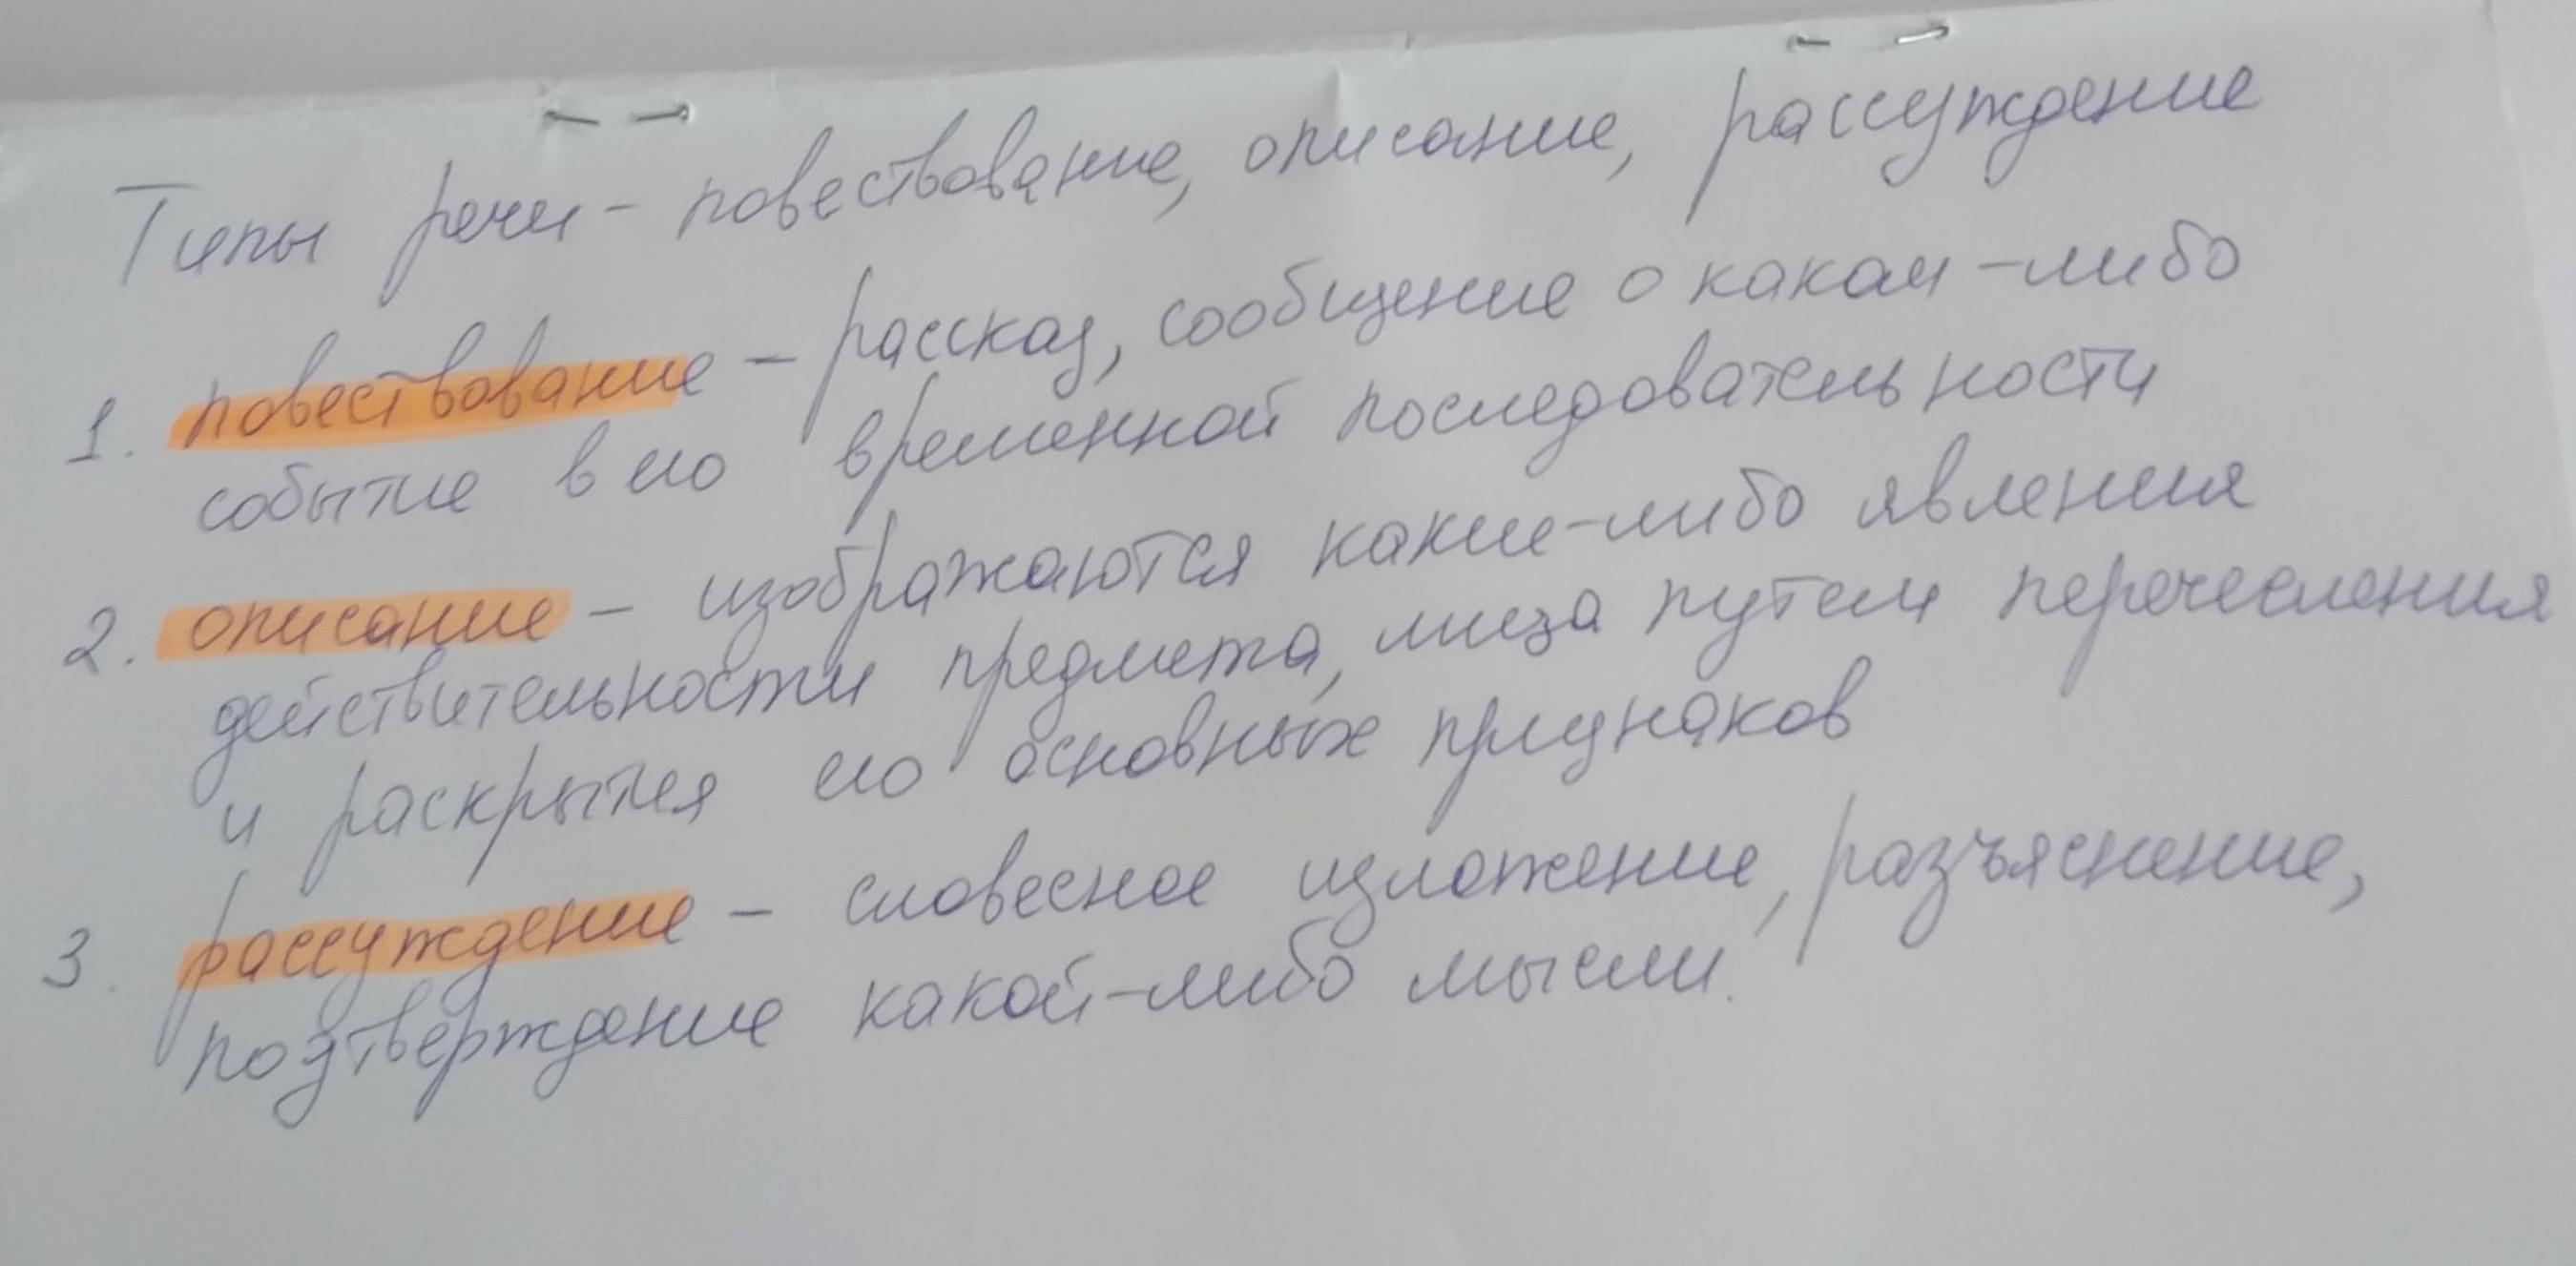 Типы речи - повествование, описание, рассуждение
1. повествование - рассказ, сообщение о каком-либо
событие в его временной последовательности
2. описание - изображаются какие-либо явления
действительности предмета, лица путем перечесления
и раскрытия его основных признаков
3. рассуждение - словесное изложение, разъяснение,
подтверждение какой-либо мысли.